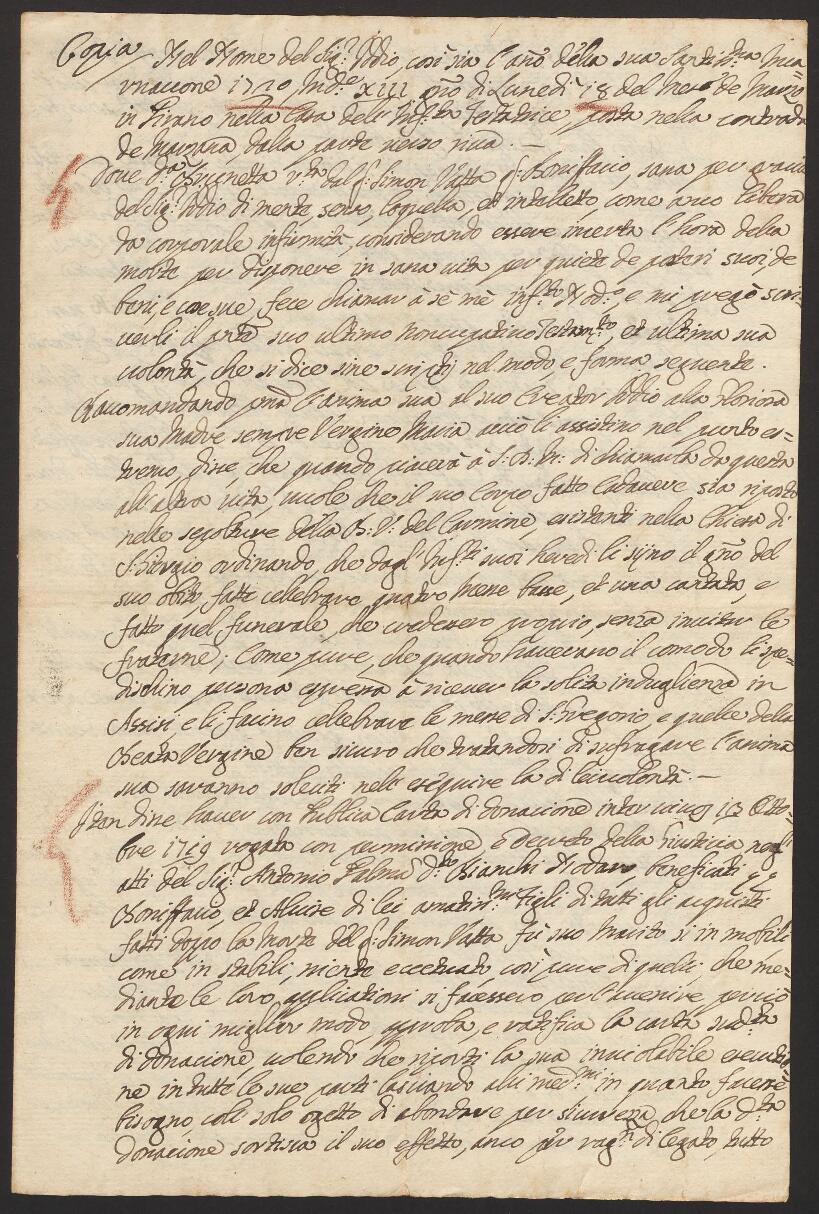 Copia Nel Nome del Sig.r Iddio, così sia l'año della sua Santis.ma Inca=
rnacione 1720 Ind.e XIII gño di Lunedi 18 del Mese de Marzo
in Pirano nella Casa dell' Inf.ta Testatrice, posta nella contrada
de Marzana, dalla parte verso riva. —
Dove d.a Brignetta v.ta del q. Simon Vatta q. Boniffacio, sana per gracia
del Sig.r Iddio di mente, senso, loquella, et intelletto, come anco libera
da corporale infirmità, considerando essere incerta l'hora della
morte per disponere in sana vita per quiete de posteri suoi, de
beni, e cose sue, fece chiamar à sè mè inf.to Nod.o, e mi pregò scri=
verli il pñte suo ultimo noncupativo Testam.to, et ultima sua
volontà, che si dice sine scriptis nel modo, e forma seguente.
Racomandando pmã l'anima sua al suo Creator Iddio alla Gloriosa
sua Madre sempre Vergine Maria acciò li assistino nel punto es=
tremo, disse, che quando piacerà à S. D. M. di chiamarla da questa
all'altra vita, vuole che il suo Corpo fatto Cadavere sia riposto
nelle sepolture della B. V. del Carmine, esistenti nella Chiesa di
S. Giorgio ordinando, che dagl' Inf.ti suoi heredi li sijno il gño del
suo obito fatte cellebrare quatro messe basse, et una cantata, e
fatto quel funerale, che crederero proprio, senza invitar le
fratarne; Come pure, che quando haverano il comodo li spe=
dischino persona espressa à ricever la solita indulgienza in
Assisi, e li facino cellebrare le messe di S. Gregorio, e quelle della
Beata Vergine ben sicuro che tratandosi di sufragare l'anima
sua sarano soleciti nell' eseguire la di lei volontà. —
Iten disse haver con Publica Carta di donacione inter vivos 13 Otto=
bre 1719 rogata con permissione, e Decreto della Giusticia negl'
atti del Sig.r Antonio Palma d.to Bianchi Nodaro, beneficati
Boniffacio, et Alvise di lei amatiss.mi figli di tutti gli acquisti
fatti doppo la Morte del q. Simon Vatta fù suo Marito sì in mobili
come in stabili, niente eccetuato, così pure di quelli, che me=
diante le loro applicationi si facessero per l'avenire, perciò
in ogni miglior modo aproba, e ratifica la carta sud.ta
di donacione, volendo che riporti la sua inviolabile esecutio=
ne in tutte le sue parti lasciando alli med.mi in quanto facesse
bisogno, coll solo ogetto di abondare per sicurezza, che la d.ta
donacione sortisca il suo effetto, anco per rag.n di legato, tutto